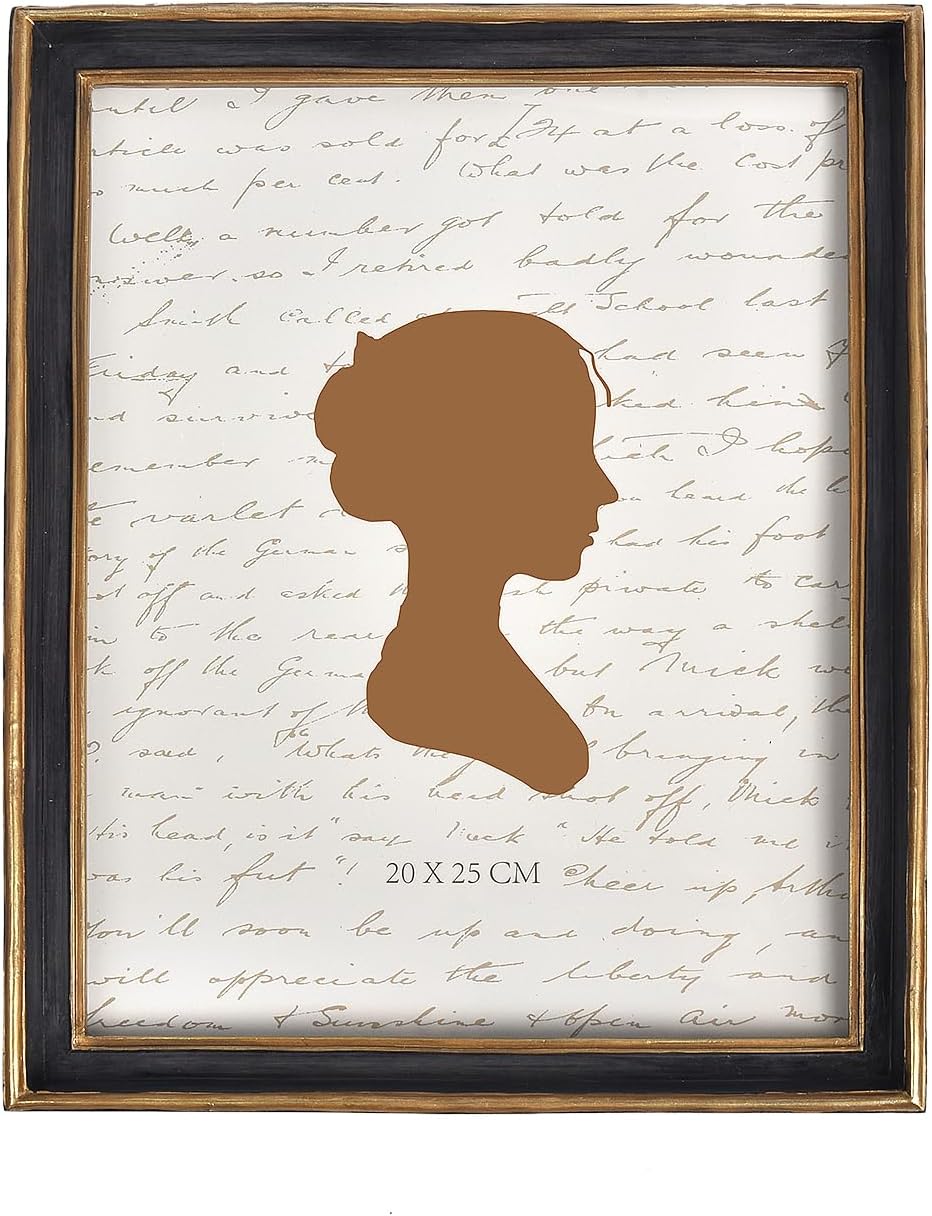 until I gave them one
rticle was sold for £24 at a loss of
so much per cent. What was the Cost pr
Well, a number got told for the
nswer, so I retired badly wounded
Smith called School last
Friday and had seen
nd survive ked him
emember ich I hope
varlet heard the
ory of the German had his foot
ot off and asked private to car
to the rear the way a shell
k off the Germa but Mick
ignorant of On arrival, the
? said, "Whats bringing in
man with his head shot off, Mick
His head, is it" say "He told me it
was his fut"! Cheer up, Arthu
20 X 25 CM
You'll soon be up and doing, an
will appreciate the liberty and
freedom & Sunshine & open air mor